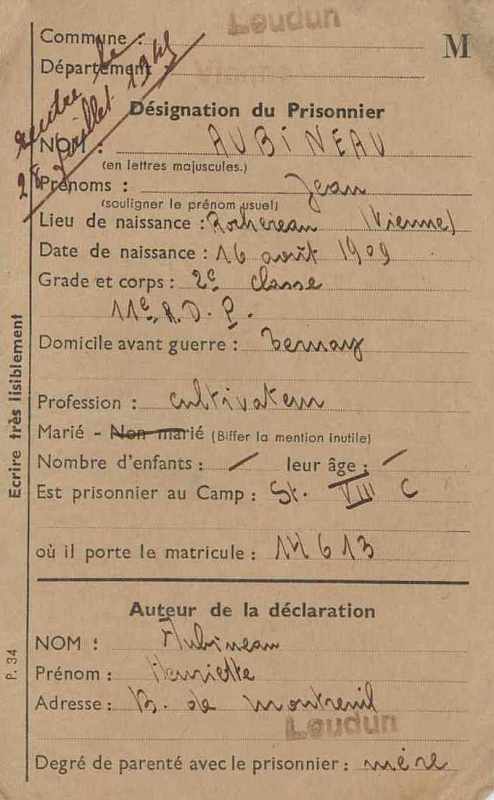 Loudun
Commune :
M
Département
rentré le
28 juillet 1941
Désignation du Prisonnier
NOM : AUBINEAU
(en lettres majuscules.)
Prénoms : Jean
(souligner le prénom usuel)
Lieu de naissance : Rochereau (Vienne)
Date de naissance : 16 août 1909
Grade et corps : 2e classe
11e R. D. P.
Domicile avant guerre : Ternay
Profession : cultivateur
Marié - Non marié (Biffer la mention inutile)
Nombre d'enfants : / leur âge : /
Est prisonnier au Camp : St. VIII C
où il porte le matricule :
Auteur de la déclaration
NOM : Aubineau
Prénom : Henriette
Adresse : B. de Montreuil
Loudun
Degré de parenté avec le prisonnier : mère
Ecrire très lisiblement
P. 34